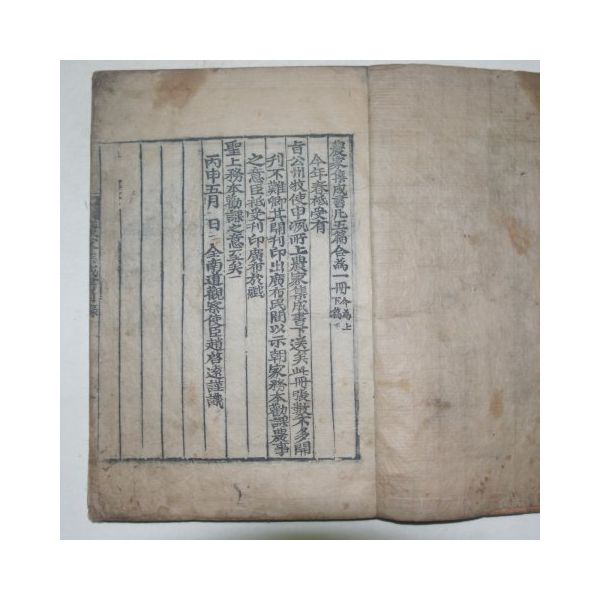 農家集成書凡五篇合為一冊今為上下篇
今年春祗受有
旨公州牧使申洬所上農家集成書下送矣此冊張數不多開
刊不難卿其開刊印出廣布民間以示朝家務本勸課農事
之意臣祗受刊印廣布於
聖上務本勸課之意至矣
丙申五月 日 全南道觀察使臣趙啓遠謹識